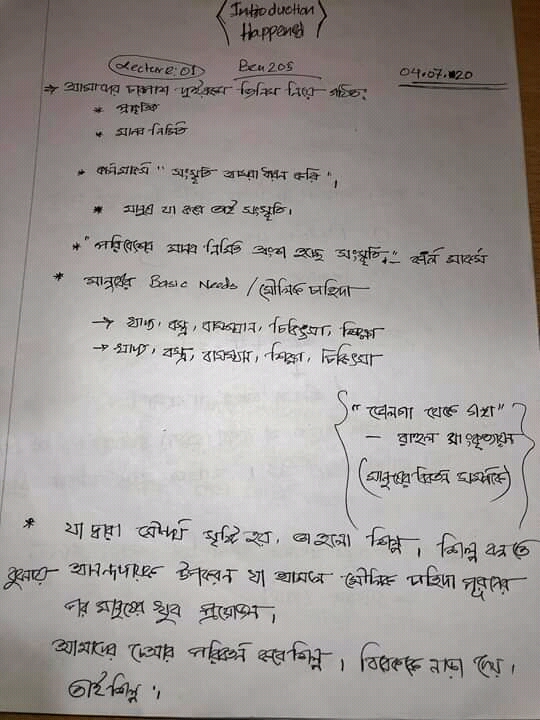 Introduction
Happened
Lecture: 01 Ben 205 04.07.20
⇒ আমাদের চারপাশ দুইরকমের জিনিস নিয়ে গঠিত:
* প্রাকৃতিক
* মানব নির্মিত
* কার্ল মার্কস "সংস্কৃতি আমরা ধারন করি",
* মানুষ যা করে তাই সংস্কৃতি।
* "পরিবেশের মানব নির্মিত অংশ হচ্ছে সংস্কৃতি" — কার্ল মার্কস
* মানুষের Basic Needs / মৌলিক চাহিদা
→ খাদ্য, বস্ত্র, বাসস্থান, চিকিৎসা, শিক্ষা
→ খাদ্য, বস্ত্র, বাসস্থান, শিক্ষা, চিকিৎসা
"ভোলগা থেকে গঙ্গা"
— রাহুল সাংকৃত্যায়ন
(মানুষের বিবর্তন সম্পর্কে)
* যা দ্বারা সৌন্দর্য সৃষ্টি হয়, তা হলো শিল্প। শিল্প বলতে
বুঝায় আনন্দদায়ক উপকরন যা আসলে মৌলিক চাহিদা পূরণের
পর মানুষের খুব প্রয়োজন।
আমাদের দেখার পরিবর্তন করে শিল্প। বিবেককে নাড়া দেয়,
তাই শিল্প।